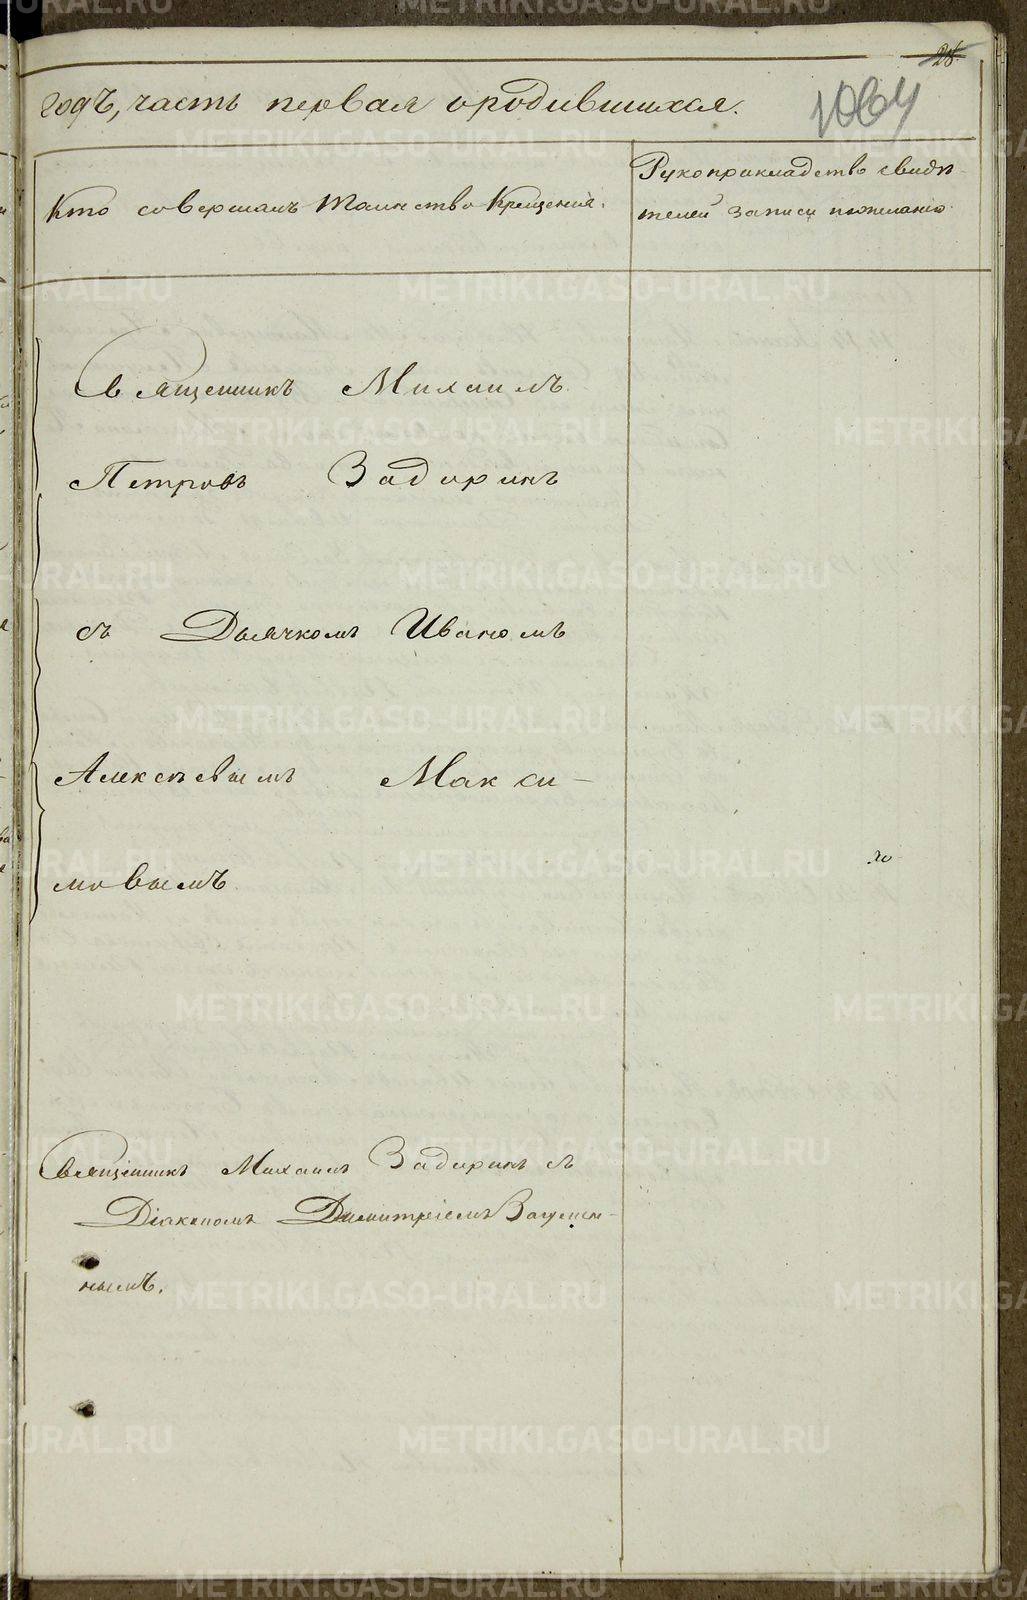 28.
1064
годъ, часть первая о родившихся.
Кто совершалъ таинство крещенія.
Рукоприкладство свидѣ-
телей записи по желанію.
Священникъ Михаилъ
Петровъ Задоринъ
съ Дьячкомъ Иваномъ
Алексѣевымъ Макси-
мовымъ
Священникъ Михаилъ Задоринъ съ
Діакономъ Димитріемъ
нымъ.
METRIKI.GASO-URAL.RU